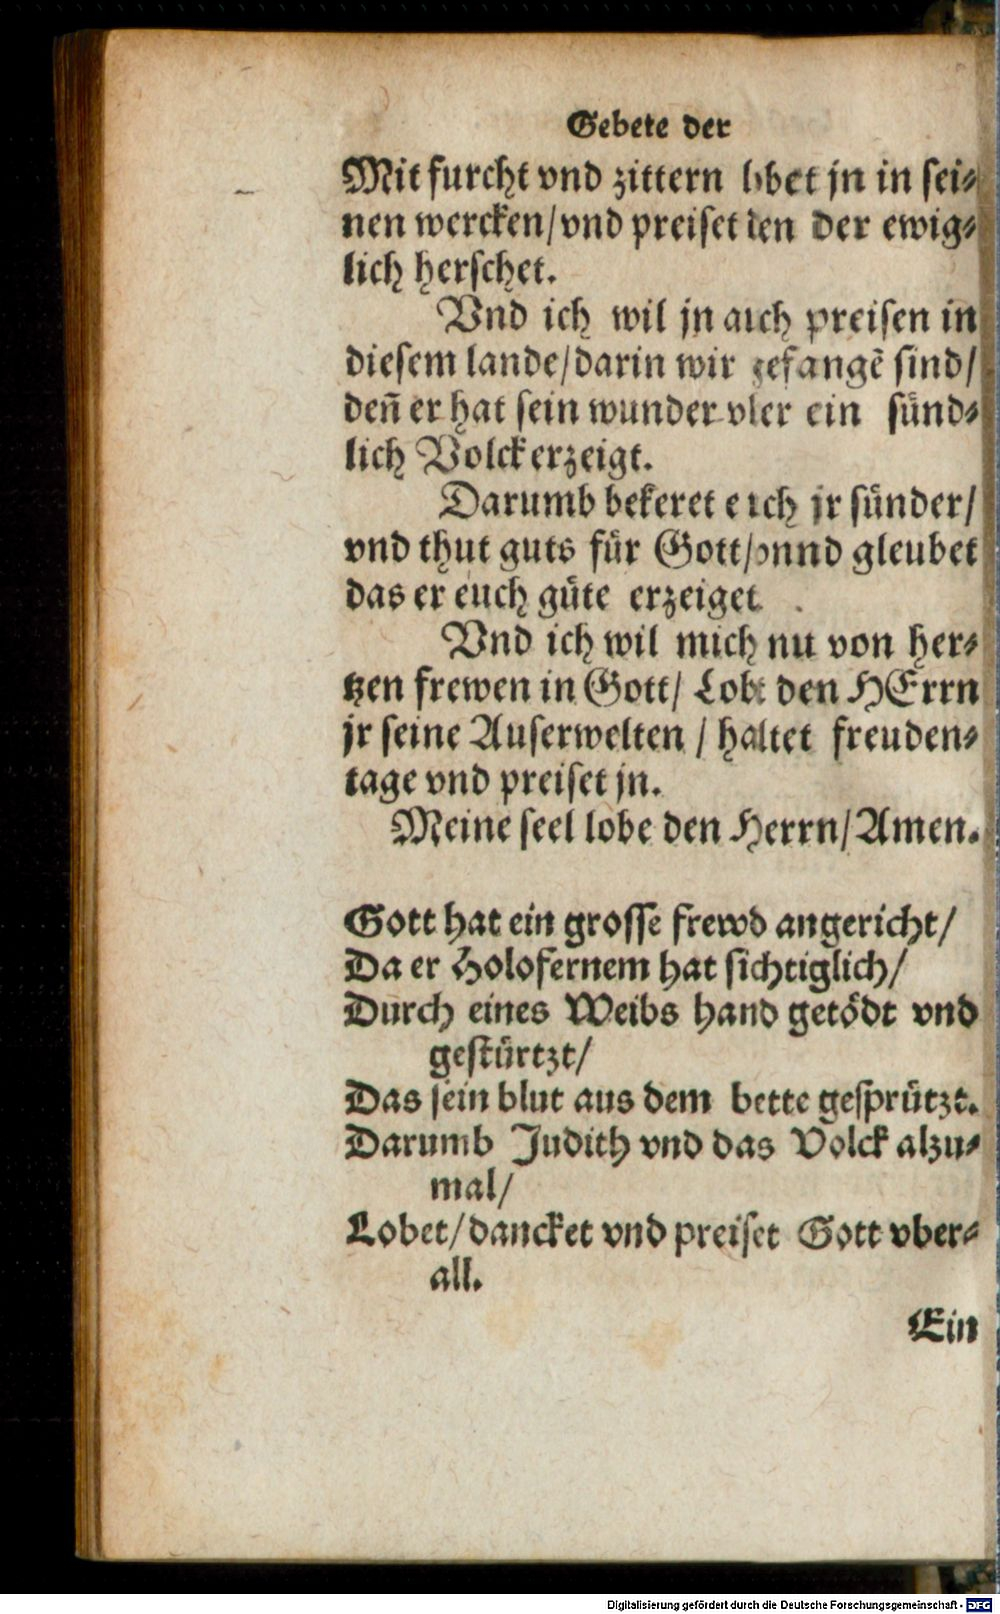 Gebete der
Mit furcht vnd zittern lobet jn in sei⸗
nen wercken/vnd preiset den der ewig⸗
lich herschet.
Vnd ich wil jn auch preisen in
diesem lande/darin wir gefangẽ sind/
deñ er hat sein wunder vber ein sünd⸗
lich Volck erzeigt.
Darumb bekeret euch jr sünder/
vnd thut guts für Gott/vnnd gleubet
das er euch güte erzeiget.
Vnd ich wil mich nu von her⸗
tzen frewen in Gott/ Lobt den HErrn
jr seine Auserwelten / haltet freuden⸗
tage vnd preiset jn.
Meine seel lobe den Herrn/Amen.
Gott hat ein grosse frewd angericht/
Da er Holofernem hat sichtiglich/
Durch eines Weibs hand getödt vnd
gestürtzt/
Das sein blut aus dem bette gesprützt.
Darumb Judith vnd das Volck alzu⸗
mal/
Lobet/dancket vnd preiset Gott vber⸗
all.
Ein
Digitalisierung gefördert durch die Deutsche Forschungsgemeinschaft - DFG